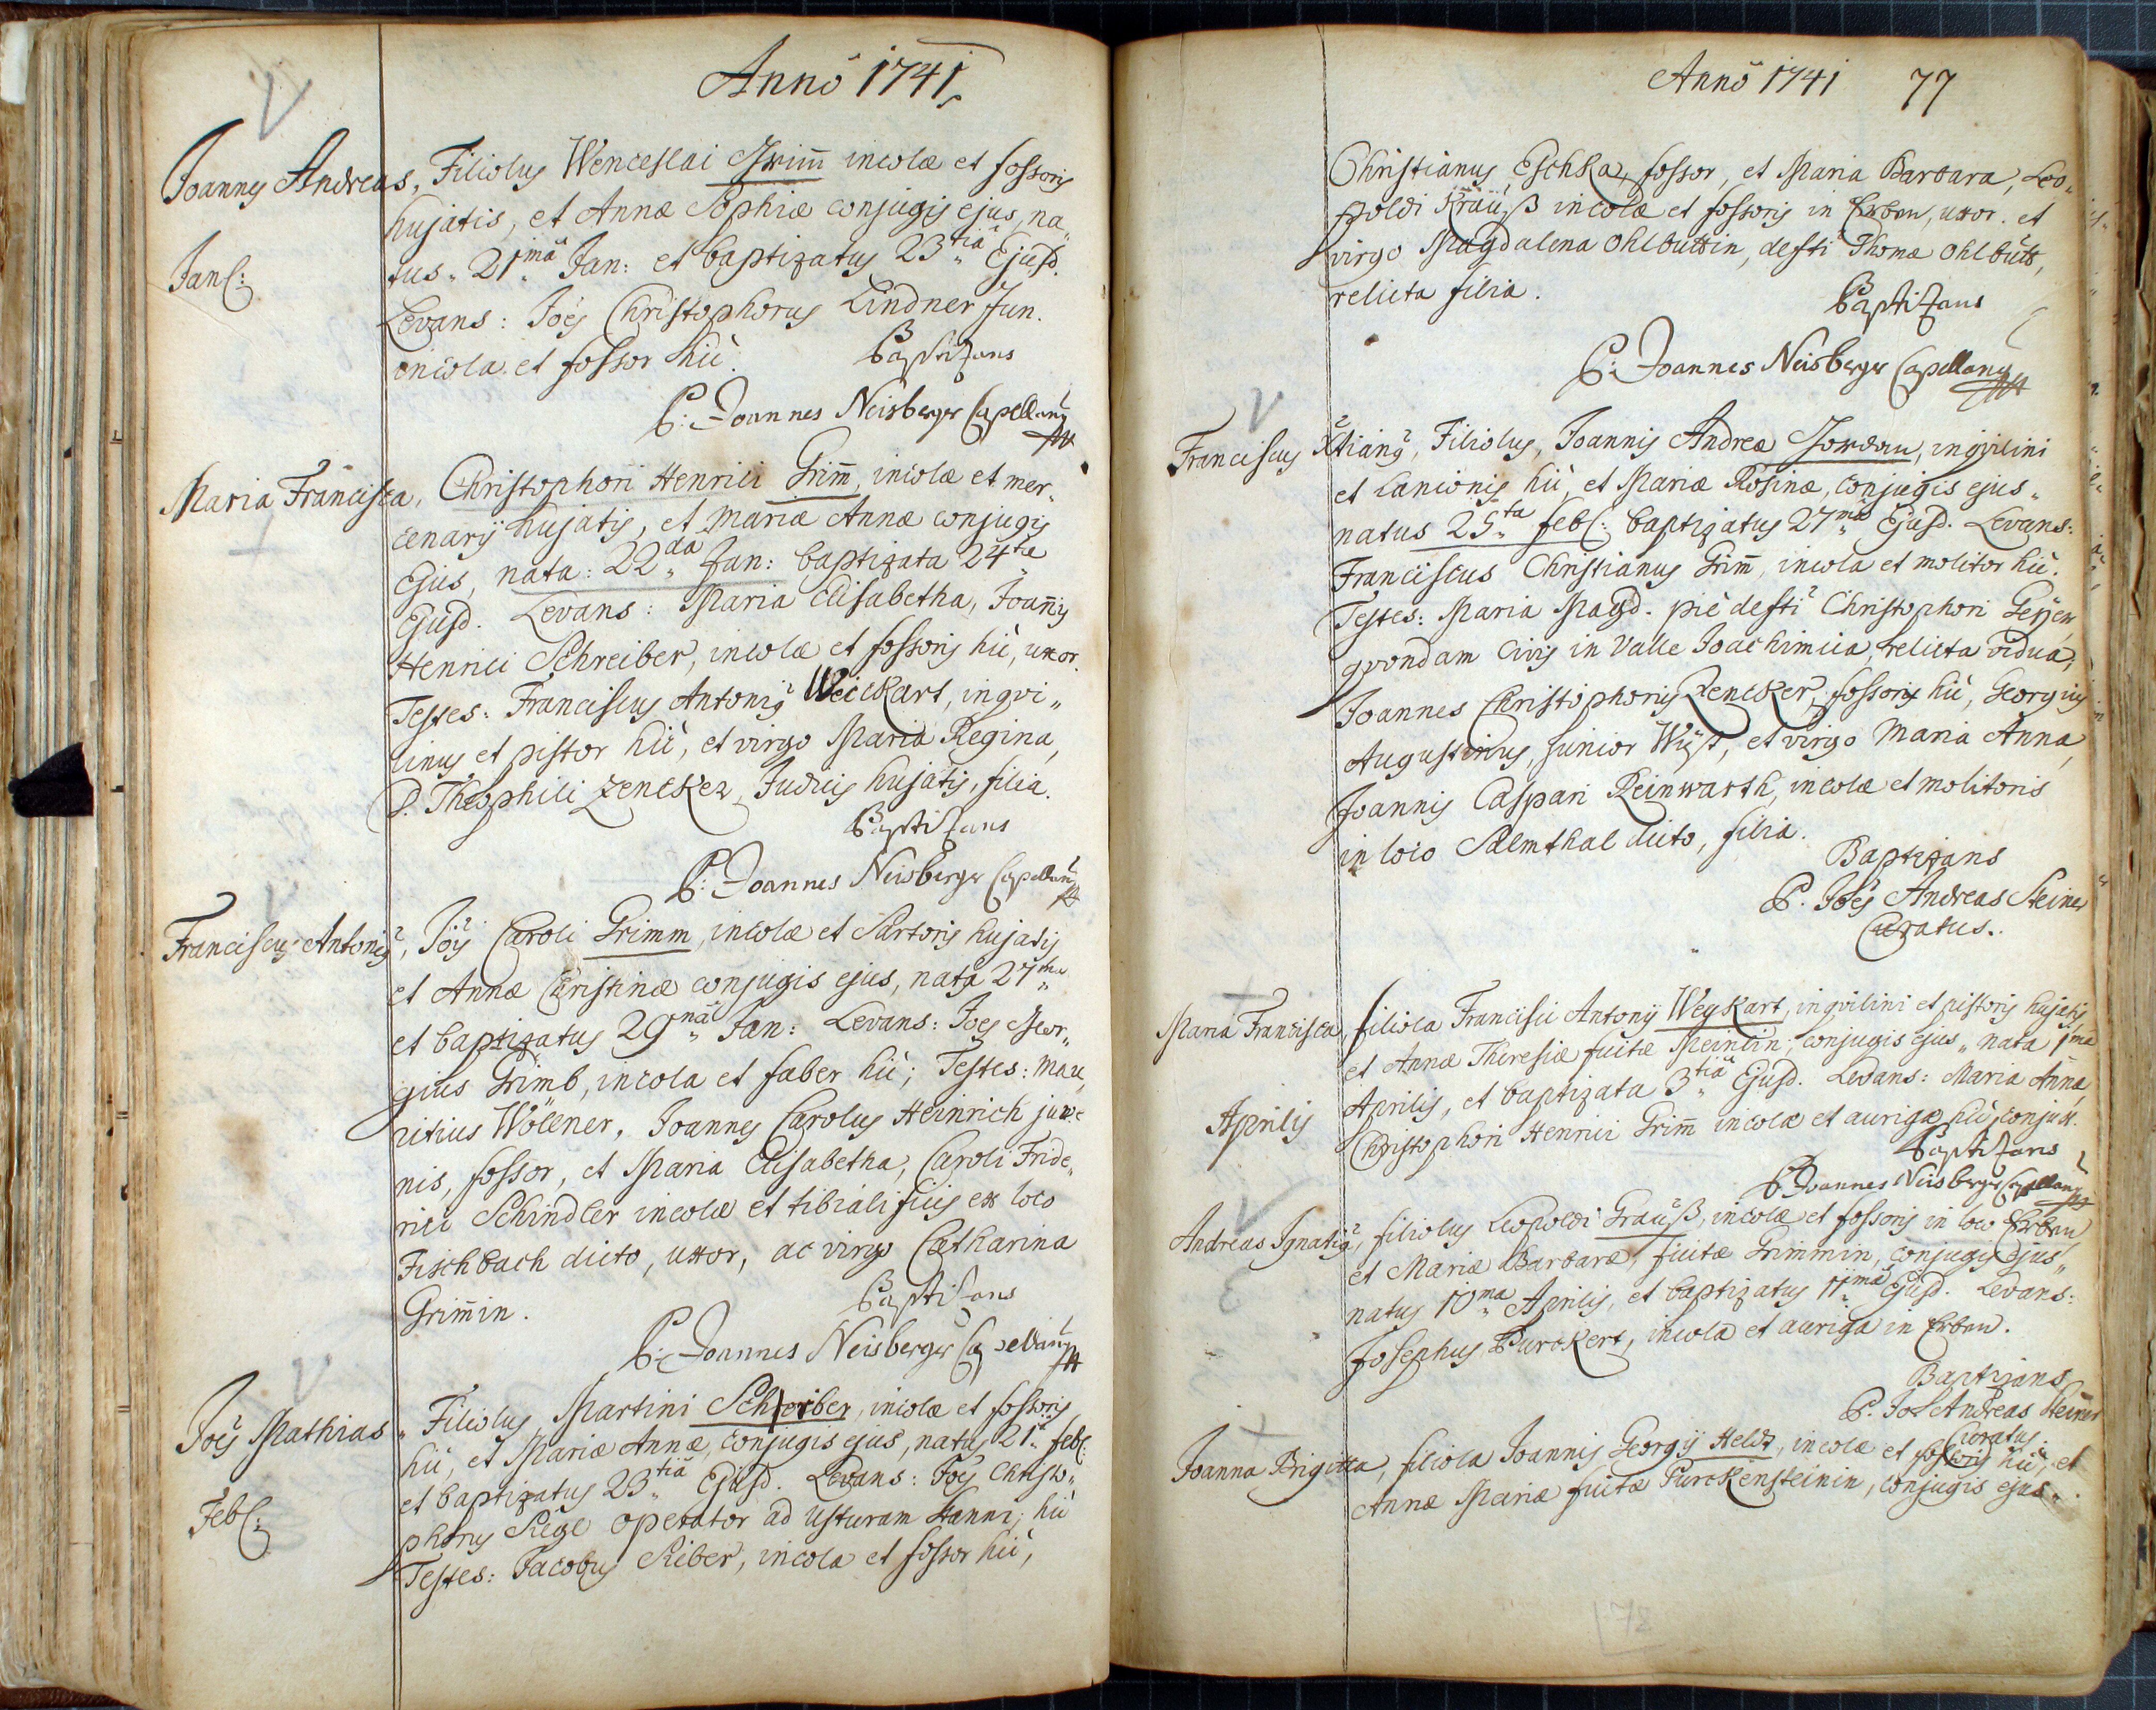 Anno 1741
Joannes Andreas, Filiolus Wenceslai Grim̄ incolæ et fossoris
hujatis, et Annæ Sophiæ conjugis ejus, na„
tus„ 21mâ Jan: et baptizatus 23tiâ Ejusd.
Jan:
Levans: Joës Christophorus Lindner Jun.
incola et fossor hic.
Baptizans
P: Joannes Neisberger Capellanus
Maria Francisca, Christophori Henrici Grim̄, incolæ et mer„
cenarij hujatis, et Mariæ Annæ conjugis
Ejus, nata: 22dâ Jan: baptizata 24ta
Ejusd. Levans: Maria Elisabetha, Joan̄is
Henrici Schreiber, incolæ et fossoris hic, uxor.
Testes: Franciscus Antonius Weickart, inqvi„
linus et pistor hic, et virgo Maria Regina,
D. Theophili Zencker, Judicis hujatis, filia.
Baptizans
P: Joannes Neisberger Capellanus
Franciscus Antonius, Jöis Caroli Grimm, incolæ et Sartoris hujatis
et Annæ Christinæ conjugis ejus, nata 27ma
et baptizatus 29nâ Jan: Levans: Joes Geor„
gius Grimb, incola et faber hic; Testes: Mau„
ritius Wöllner, Joannes Carolus Heinrich juve„
nis, fossor, et Maria Elisabetha, Caroli Fride„
rici Schindler incolæ et tibialificis ex loco
Fischbach dicto, uxor, ac virgo Catharina
Grim̄in.
Baptizans
P: Joannes Neisberger Capellanus
Joës Mathias„ Filiolus Martini Schreiber, incolæ et fossoris
hic, et Mariæ Annæ, conjugis ejus, natus 21. feb:
et baptizatus 23tiâ Ejusd. Levans: Joës Christo„
Feb:
phorus Rege operator ad Usturam Stanni, hic
Testes: Jacobus Riber, incola et fossor hic,
Anno 1741 77
Christianus Eschka, fossor, et Maria Barbara, Leo„
poldi Krauß incolæ et fossoris in Erben, uxor. et
virgo Magdalena Ohlbuttin, defti Thomæ Ohlbutt,
relicta filia.
Baptizans
P: Joannes Neisberger Capellanus
Franciscus Xtianus, Filiolus, Joannis Andreæ Jordan, inqvilini
et Lanionis hic, et Mariæ Rosinæ, conjugis ejus„
natus 25ta feb: baptizatus 27mâ Ejusd. Levans:
Franciscus Christianus Grim̄, incola et molitor hic.
Testes: Maria Magd. piè defti Christophori
qvondam Civis in Valle Joachimica, relicta vidua,
Joannes Christophorus Zencker, fossoris hic, Georgius
Augustinus, junior et virgo Maria Anna,
Joannis Caspari Reinwarth, incolæ et molitoris
in loco Salmthal dicto, filia.
Baptizans
P. Joës Andreas Steiner
Curatus.
Maria Francisca, filiola Francisci Antonij Weykart, inqvilini et pistoris hujatis
et Annæ Theresiæ fuitæ conjugis ejus„ nata 1ma
Aprilis, et baptizata 3tiâ Ejusd. Levans: Maria Anna,
Aprilis
Christophori Henrici Grim̄ incolæ et aurigæ hic, conjux.
Baptizans
P. Joannes Neisberger Capellanus
Andreas Ignatius, filiolus Leopoldi Grauß, incolæ et fossoris in loco Erben
et Mariæ Barbaræ, fuitæ Grimmin, conjugis ejus„
natus 10ma Aprilis, et baptizatus 11mâ Ejusd. Levans:
Josephus Purckert, incola et auriga in Erben.
Baptizans
P. Joës Andreas Steiner
Curatus.
Joanna Brigitta, filiola Joannis Georgij Heldt, incolæ et fossoris hic, et
Annæ Mariæ fuitæ Purckensteinin, conjugis ejus„
72